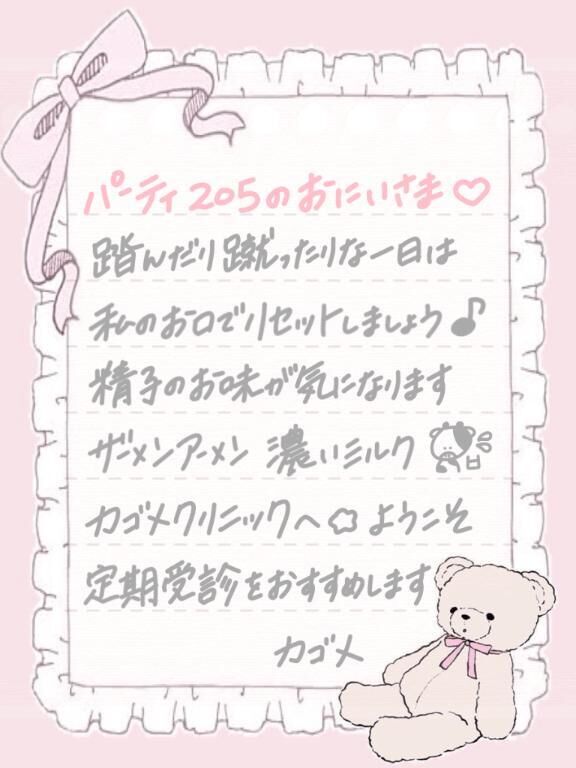 パーティ205のおにいさま♡
踏んだり蹴ったりな一日は
私のお口でリセットしましょう♪
精子のお味が気になります
ザーメンアーメン 濃いミルク
カゴメクリニックへ ようこそ
定期受診をおすすめします
カゴメ